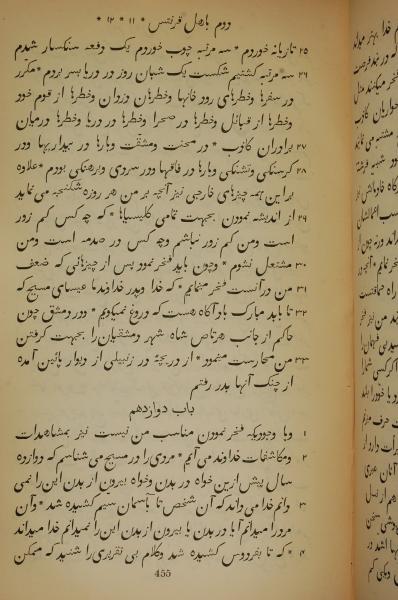 دوم باهل قرنتس * ۱۱ * ۱۲ *
۲۵ تازیانه خوردم * سه مرتبه چوب خوردم یک دفعه سنکسار شدم
۲۶ سه مرتبه کشتیم شکست یک شبان روز در دریا بسر بردم * مکرّر
در سفرها و خطرهای رودخانها و خطرهای دزدان و خطرها از قوم خود
و خطرها از قبائل و خطرها در صحرا و خطرها در دریا و خطرها درمیان
۲۷ برادران کاذب * در محنت و مشقّت و بارها در بیداریها و در
۲۸ کرسنکی و تشنکی و بارها در فاقها و در سردی و برهنکی بودم * علاوه
براین همه چیزهای خارجی نیز آنچه بر من هر روزه شکنجه می نماید
۲۹ از اندیشه نمودن بجهت تمامی کلیسیاها * که چه کس کم زور
است و من کم زور نباشم و چه کس در صدمه است و من
۳۰ مشتعل نشوم * و چون باید فخر نمود پس از چیزهائی که ضعف
۳۱ من درآنست فخر مینمایم * که خدا و پدر خداوند ما عیسای مسیح که
۳۲ تا باید مبارک باد آگاه هست که دروغ نمیکویم * و در دمشق چون
حاکم از جانب هرتاس شاه شهر دمشقیان را بجهت کرفتن
۳۳ من محارست مینمود * از دریچهٔ در زنبیلی از دیوار پائین آمده
از چنک آنها بدر رفتم
باب دوازدهم
۱ و با وجودیکه فخر نمودن مناسب من نیست نیز بمشاهدات
۲ و مکاشفات خداوند می آیم * مردی را در مسیح می شناسم که دوازده
سال پیش ازین خواه در بدن و خواه بیرون از بدن این را نمی
۳ دانم خدا می داند که آن شخص تا بآسمان سیم کشیده شد * و آن
مرد را میدانم آیا در بدن یا بیرون از بدن این را نمیدانم خدا میداند
۴ * که تا بفردوس کشیده شد و کلام بی تقریری را شنید که ممکن
455